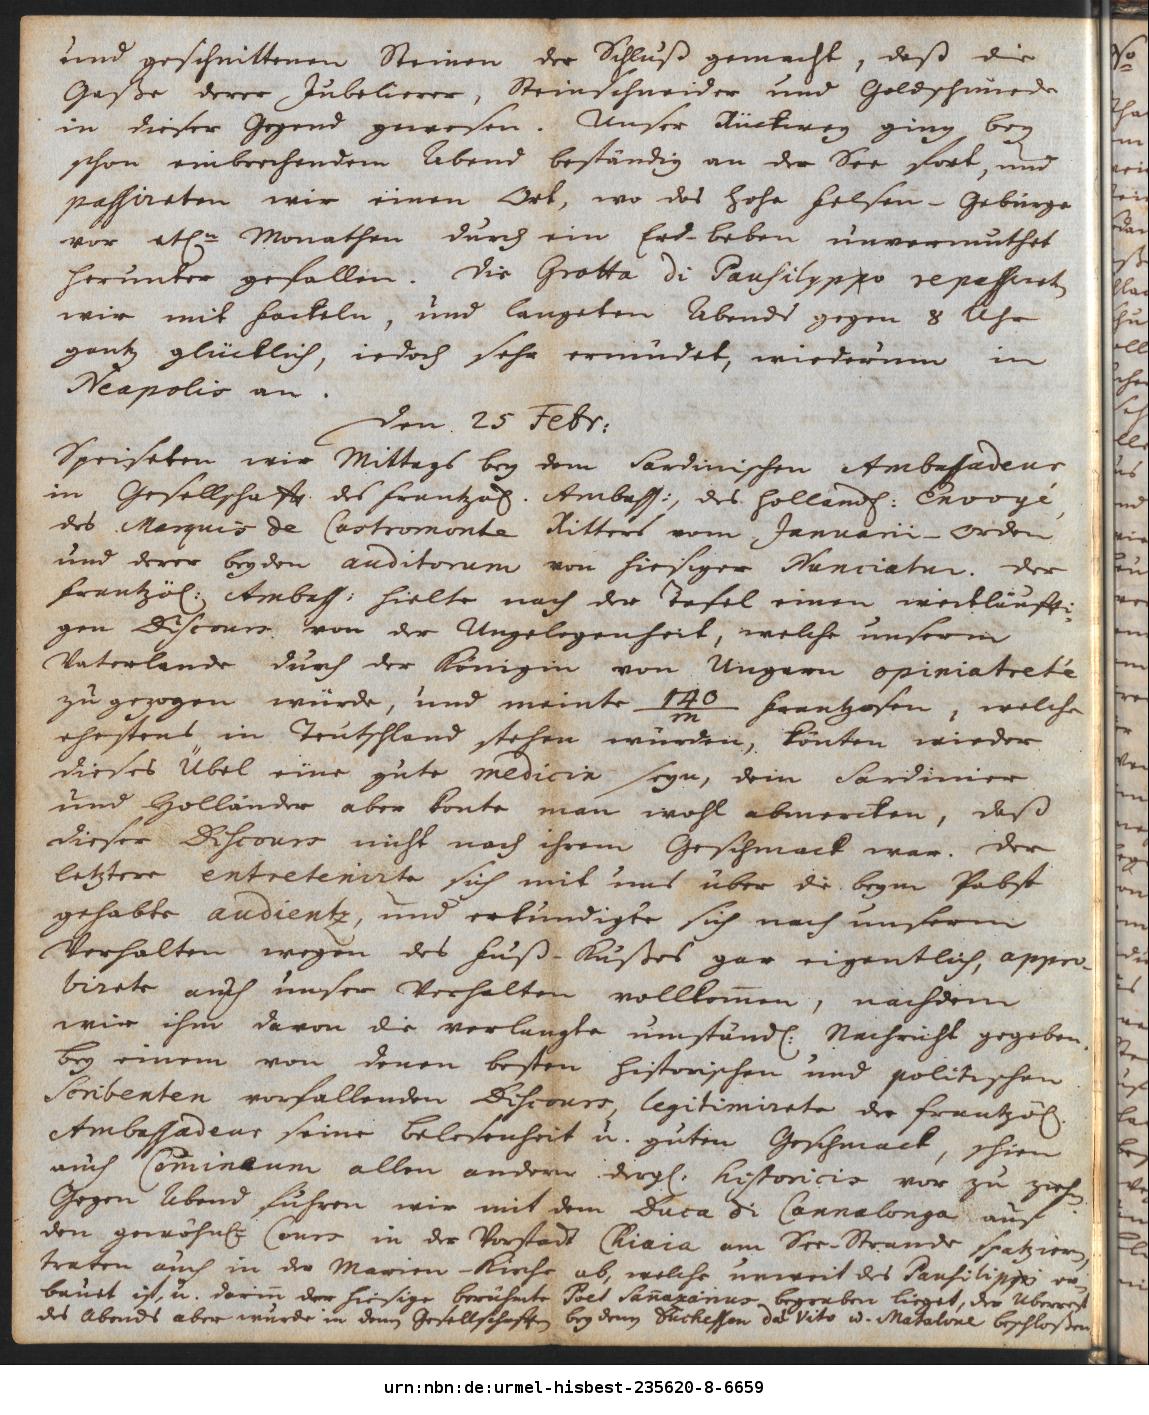 und geschnittenen Steinen der Schluß gemacht, daß die
Gaße derer Jubelierer, Steinschneider und Goldschmiede
in dieser Gegend gewesen. Unser Rückweg ging bey
schon einbrechendem Abend beständig an der See fort, und
passireten wir einen Ort, wo das hohe Felsen-Gebürge
vor etl: Monathen durch ein Erd-beben unvermuthet
herunter gefallen. Die Grotta di Pausilyppo repassiret
wir mit Fackeln, und langeten Abends gegen 8 Uhr
gantz glücklich, iedoch sehr ermüdet, wiederum in
Neapolis an.
Den 25 Febr:
Speiseten wir Mittags bey dem Sardinischen Ambassadeur
in Gesellschafft des Frantzös. Ambass:, des Holländ: Envoyé,
des Marquis de Castromonte Ritters vom Januarii-Orden
und derer beyden auditorum von hiesiger Nunciatur. Der
Frantzös: Ambass: hielte nach der Tafel einen weitläuffti-
gen Discours von der Ungelegenheit, welche unserm
Vaterlande durch der Königin von Ungarn opiniatreté
zugezogen würde, und meinte 140/m Frantzosen, welche
ehestens in Teutschland stehen würden, könten wieder
dieses Übel eine gute medicin seyn, dem Sardinier
und Holländer aber konte man wohl abmercken, daß
dieser Discours nicht nach ihrem Geschmack war. Der
letztere entretenirte sich mit uns über die beym Pabst
gehabte audientz, und erkundigte sich nach unserm
Verhalten wegen des Fuß-Kußes gar eigentlich, appro-
birete auch unser Verhalten vollkom̅en, nachdem
wir ihm davon die verlangte umständl: Nachricht gegeben.
Bey einem von denen besten historischen und politischen
Scribenten vorfallenden Discours, legitimirete der Frantzös.
Ambassadeur seine Belesenheit u. guten Geschmack, schien
auch Comin̅aeum allen andern dergl. historicis vor zu ziehn
Gegen Abend führen wir mit dem Duca di Cannalonga auf
den gewöhnl: Cours in der Vorstadt Chiaia am See-Strande spatziern,
traten auch in der Marien-Kirche ab, welche unweit des Pausilippi er-
bauet ist, u. darin̅ der hiesige berühmte Poet San̅azarius begraben lieget, der Überrest
des Abends aber wurde in denen Gesellschafften bey denen Duchessen da Vito u. Matalone beschloßen
urn:nbn:de:urmel-hisbest-235620-8-6659